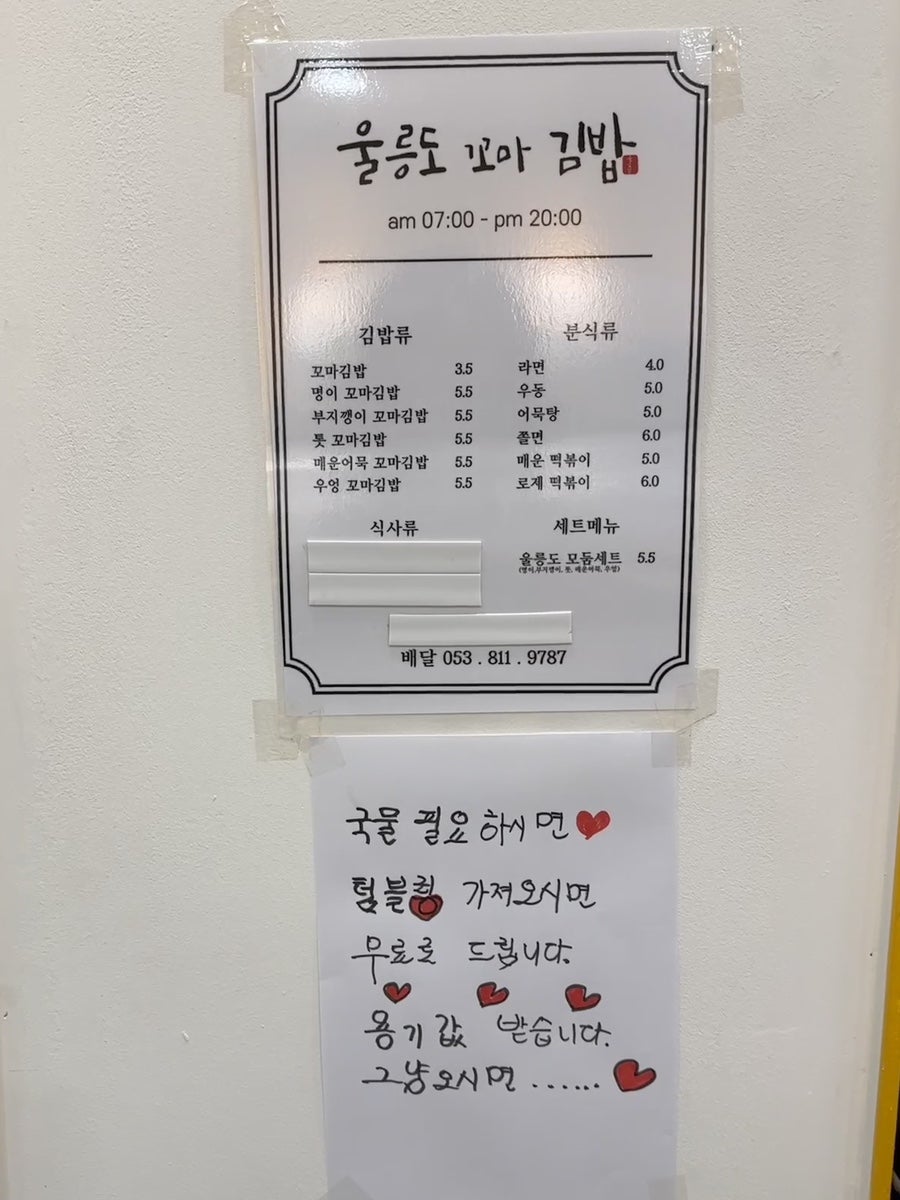 울릉도 꼬마 김밥
am 07:00 - pm 20:00
김밥류
꼬마김밥 3.5
명이 꼬마김밥 5.5
부지깽이 꼬마김밥 5.5
톳 꼬마김밥 5.5
매운어묵 꼬마김밥 5.5
우엉 꼬마김밥 5.5
분식류
라면 4.0
우동 5.0
어묵탕 5.0
쫄면 6.0
매운 떡볶이 5.0
로제 떡볶이 6.0
식사류
세트메뉴
울릉도 모둠세트 5.5
(명이,부지깽이, 톳, 매운어묵, 우엉)
배달 053 . 811 . 9787
국물 필요하시면
텀블러 가져오시면
무료로 드립니다.
용기값 받습니다.
그냥오시면 ......